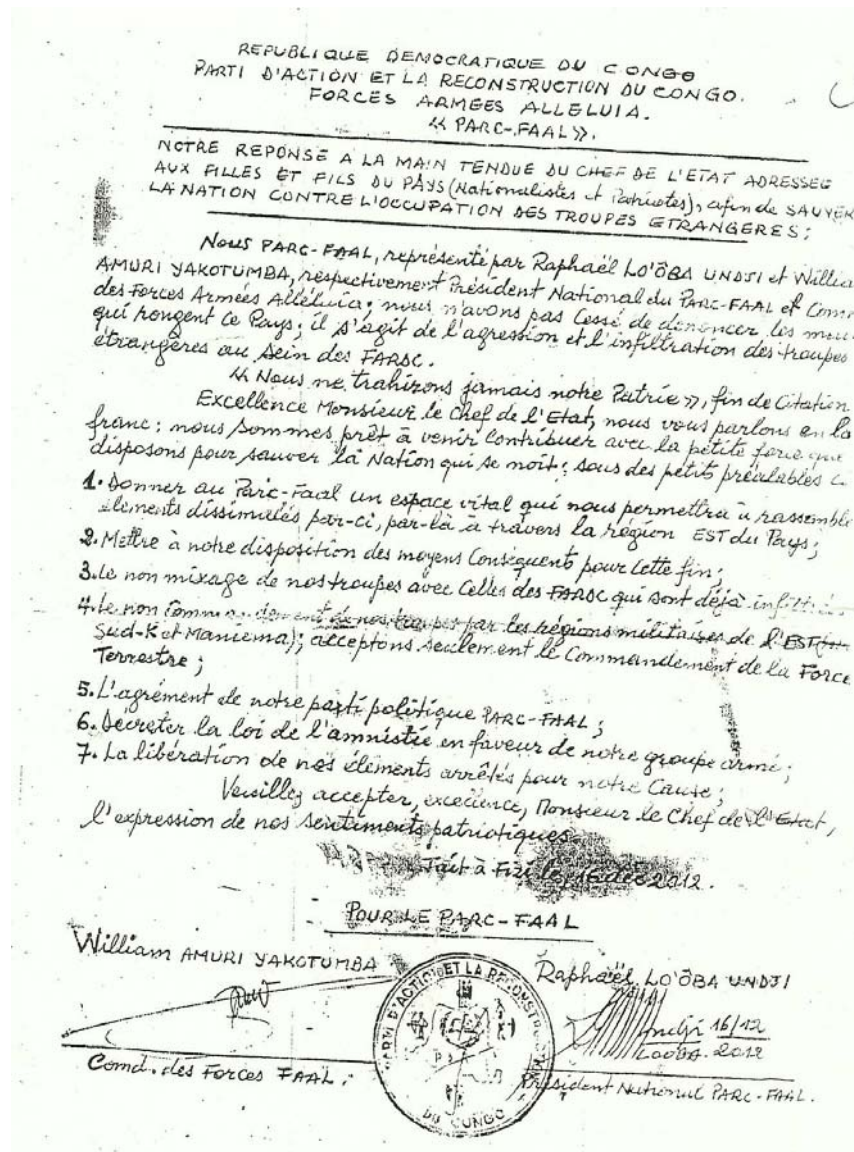 REPUBLIQUE DEMOCRATIQUE DU CONGO
PARTI D'ACTION ET LA RECONSTRUCTION DU CONGO.
FORCES ARMEES ALLELUIA.
« PARC-FAAL ».
NOTRE REPONSE A LA MAIN TENDUE DU CHEF DE L'ETAT ADRESSEE
AUX FILLES ET FILS DU PAYS (Nationalistes et Patriotes), afin de SAUVER
LA NATION CONTRE L'OCCUPATION DES TROUPES ETRANGERES;
Nous PARC-FAAL, représenté par Raphaël LO'ÔBA UNDJI et Willia
AMURI YAKOTUMBA, respectivement Président National du PARC-FAAL et Com
des Forces Armées Alléluia; nous n'avons pas cessé de dénoncer les mau
qui rongent ce Pays; il s'agit de l'agression et l'infiltration des troupes
étrangères au sein des FARDC.
« Nous ne trahirons jamais notre Patrie », fin de citation
Excellence Monsieur le Chef de l'Etat, nous vous parlons en la
franc: nous sommes prêt à venir contribuer avec la petite force que
disposons pour sauver la Nation qui se noit; sous des petits préalables
1. Donner au Parc-Faal un espace vital qui nous permettra à rassemble
éléments dissimulés par-ci, par-là à travers la région EST du Pays;
2. Mettre à notre disposition des moyens conséquents pour cette fin;
3. Le non mixage de nos troupes avec celles des FARDC qui sont déjà infiltrées
4. Le non commandement de nos troupes par les régions militaires de l'EST
Sud-K et Maniema); acceptons seulement le Commandement de la Force
Terrestre;
5. L'agrément de notre parti politique PARC-FAAL;
6. Décreter la loi de l'amnistie en faveur de notre groupe armé;
7. La libération de nos éléments arrêtés pour notre Cause;
Veuillez accepter, excellence, Monsieur le Chef de l'Etat,
l'expression de nos sentiments patriotiques.
Fait à Fizi le, 16 déc 2012.
POUR LE PARC-FAAL
William AMURI YAKOTUMBA
Raphaël LO'ÔBA UNDJI
PARTI D'ACTION ET LA RECONSTRUCTION
DU CONGO
undji 16/12
LOOBA. 2012
Comd. des Forces FAAL.
Président National PARC-FAAL.